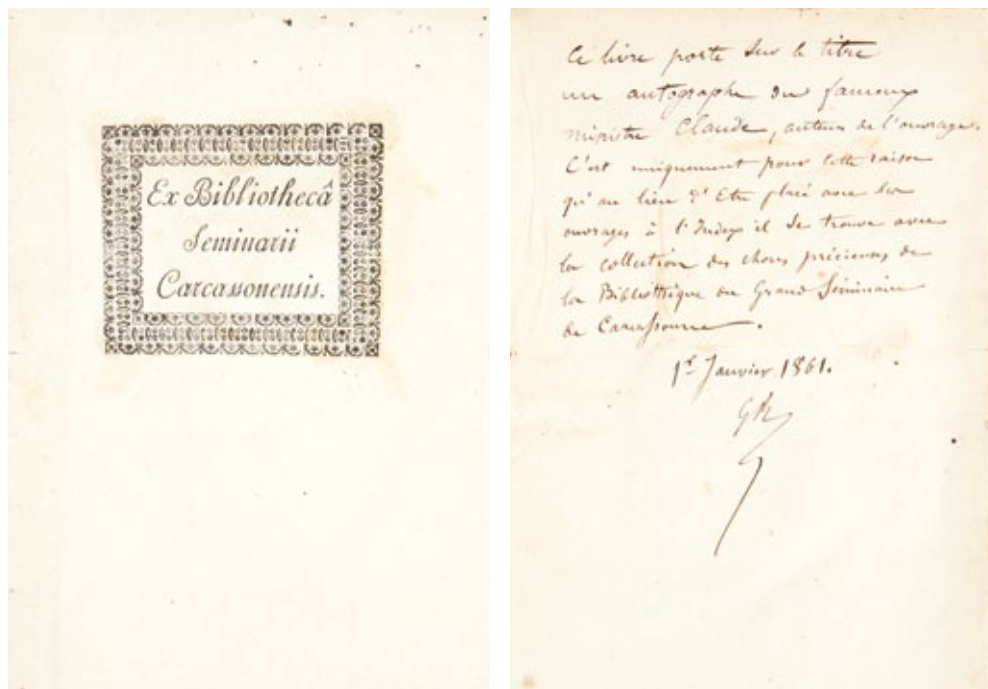 Ex Bibliothecâ
Seminarii
Carcassonensis.
Ce livre porte sur le titre
un autographe du fameux
ministre Claude, auteur de l'ouvrage.
C'est uniquement pour cette raison
qu'au lieu d'Etre placé avec les
ouvrages à l'Index il se trouve avec
la collection des choses précieuses de
la Bibliothèque du Grand Séminaire
de Carcassonne.
1er Janvier 1861.